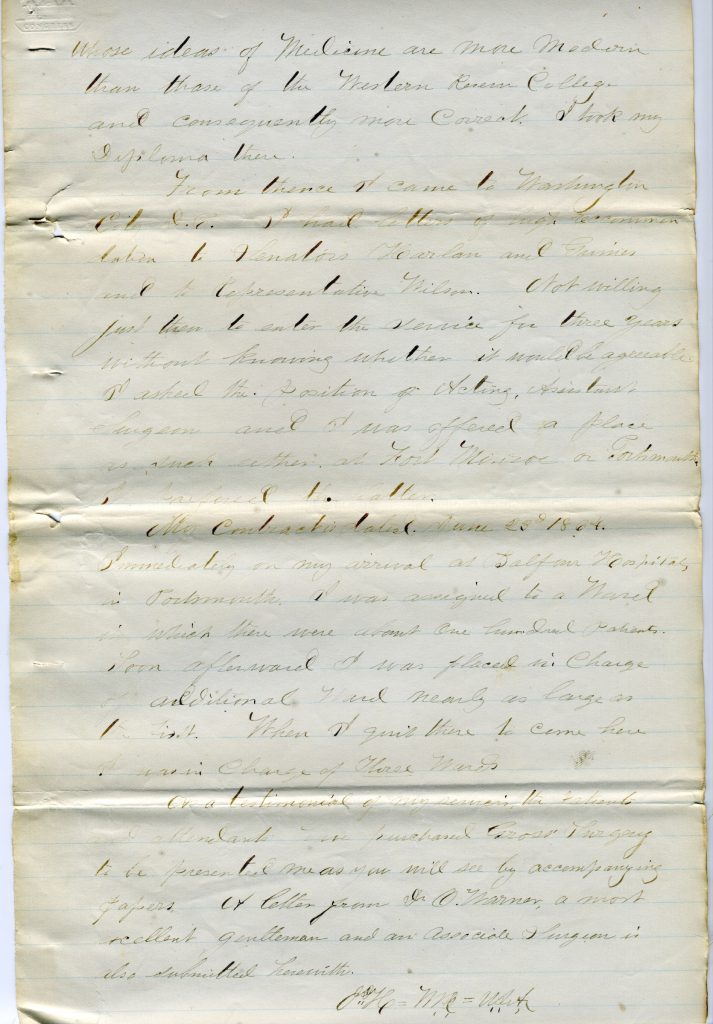 CONGRESS
whose ideas of Medicine are more Modern
than those of the Western Reserve College
and consequently more Correct. I took my
Diploma there.
From thence I came to Washington
City D.C. I had letters of
to Senators Harlan and Grimes
and to Representative Wilson. Not willing
just then to enter the service for three years
without knowing whether it would be agreeable
I asked the Position of Acting Assistant
Surgeon and I was offered a place
as such either at Fort Monroe or Portsmouth.
I the latter.
My Contract is dated June 23d 1864.
Immediately on my arrival at Balfour Hospital,
in Portsmouth, I was assigned to a Ward
in which there were about One hundred patients.
Soon afterward I was placed in Charge
of additional Ward nearly as large as
the first. When I quit there to come here
I was in Charge of Three Wards
As a testimonial of my services, the Patients
and attendants have purchased Gross' Surgery
to be presented me as you will see by accompanying
papers. A letter from Dr O. Warner, a most
excellent gentleman and an Associate Surgeon is
also submitted herewith.